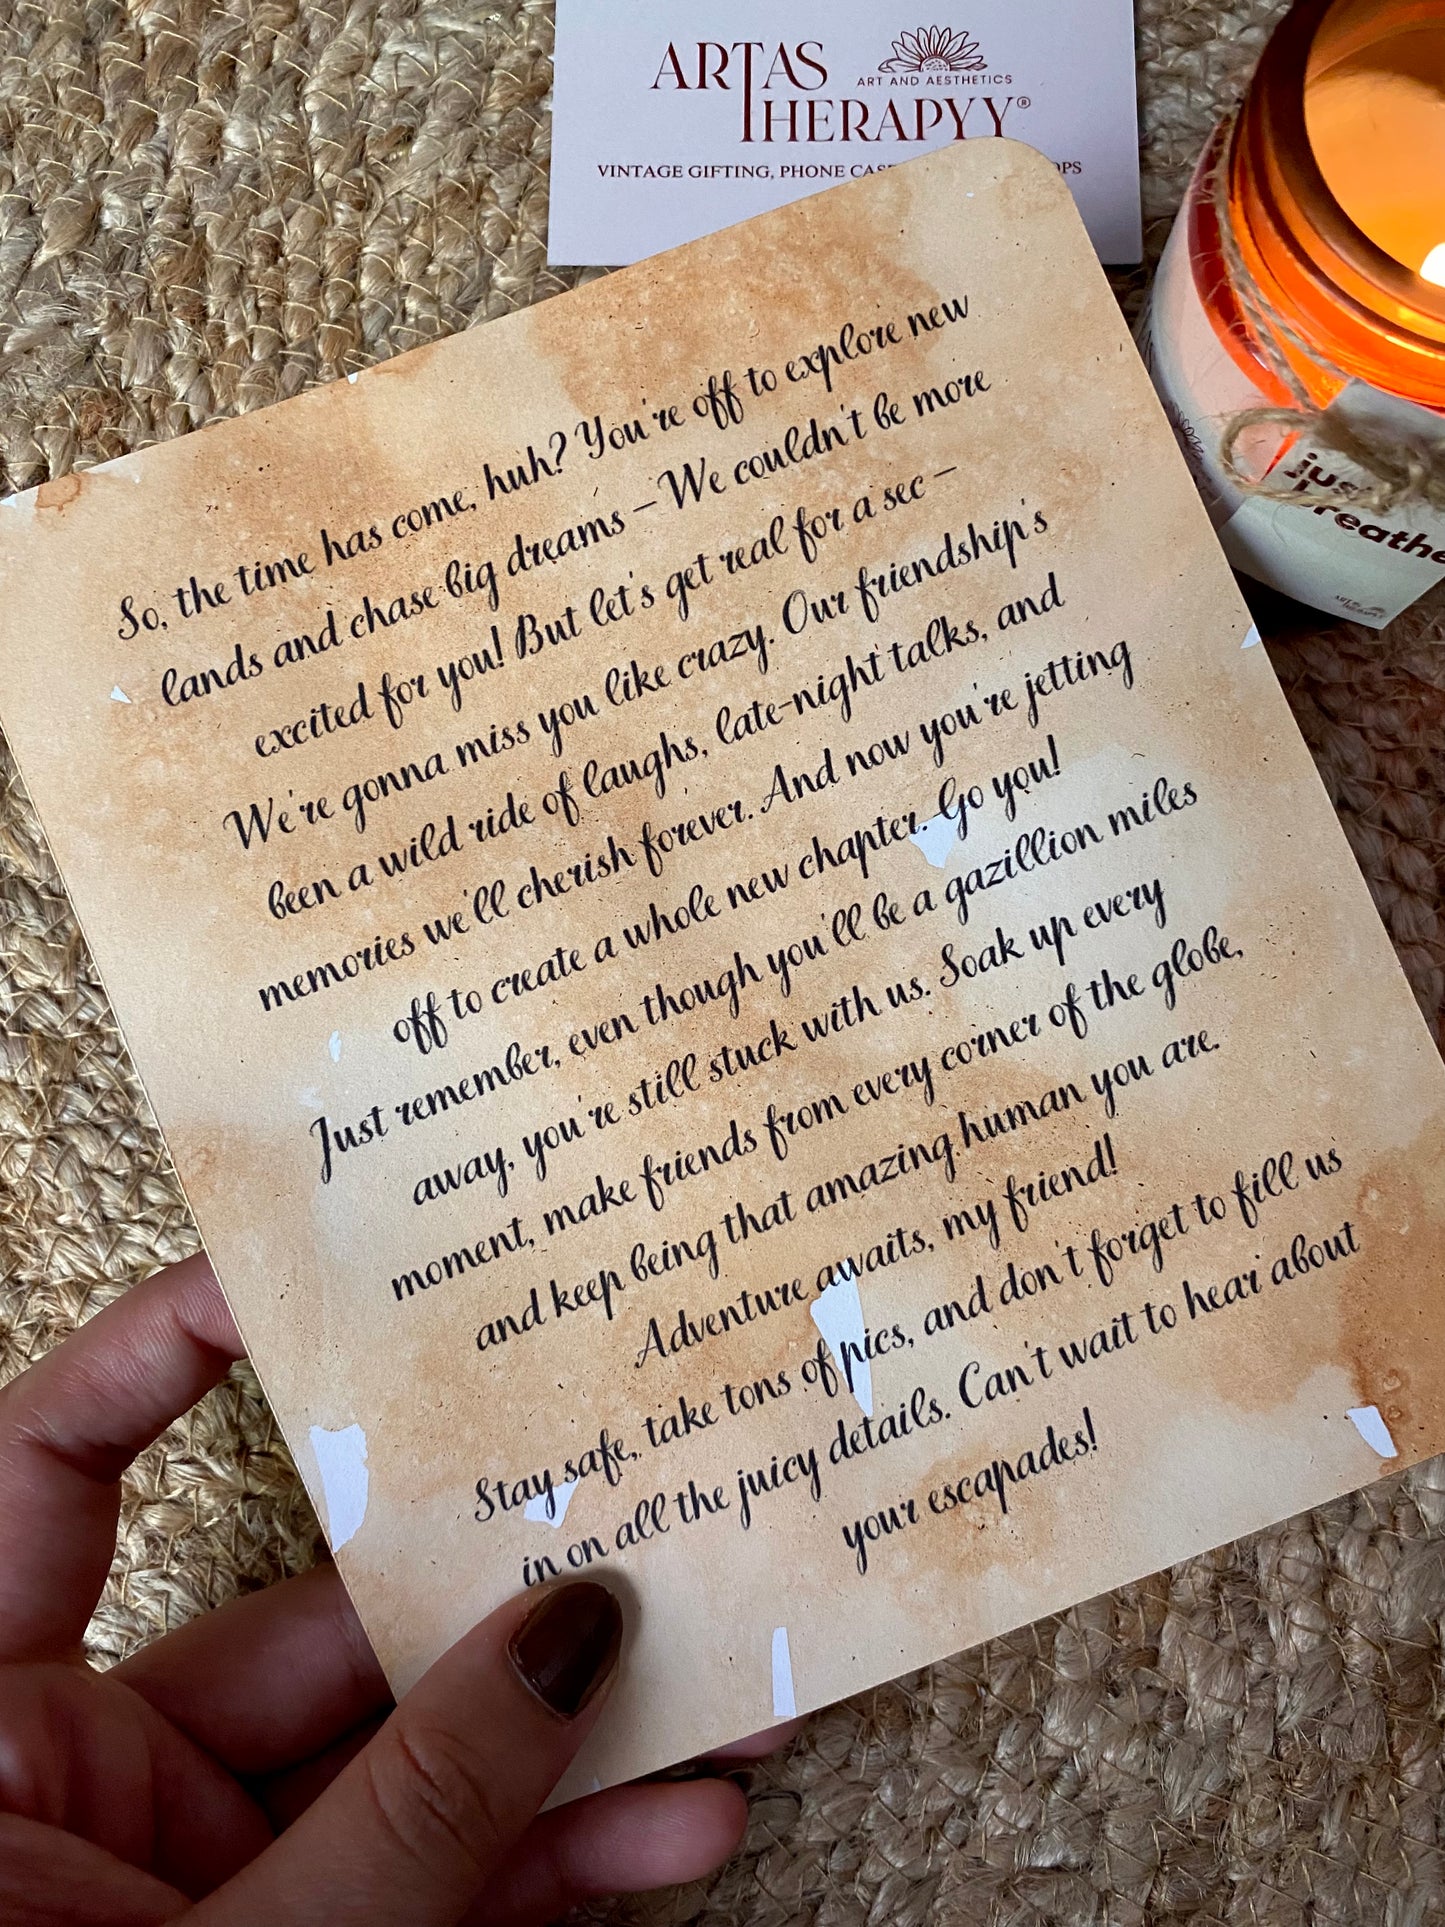 ARTAS
ART AND AESTHETICS
THERAPYY®
VINTAGE GIFTING, PHONE
So, the time has come, huh? You're off to explore new
lands and chase big dreams – We couldn't be more
excited for you! But let's get real for a sec –
We're gonna miss you like crazy. Our friendship's
been a wild ride of laughs, late-night talks, and
memories we'll cherish forever. And now you're jetting
off to create a whole new chapter. Go you!
Just remember, even though you'll be a gazillion miles
away, you're still stuck with us. Soak up every
moment, make friends from every corner of the globe,
and keep being that amazing human you are.
Adventure awaits, my friend!
Stay safe, take tons of pics, and don't forget to fill us
in on all the juicy details. Can't wait to hear about
your escapades!
just
breathe